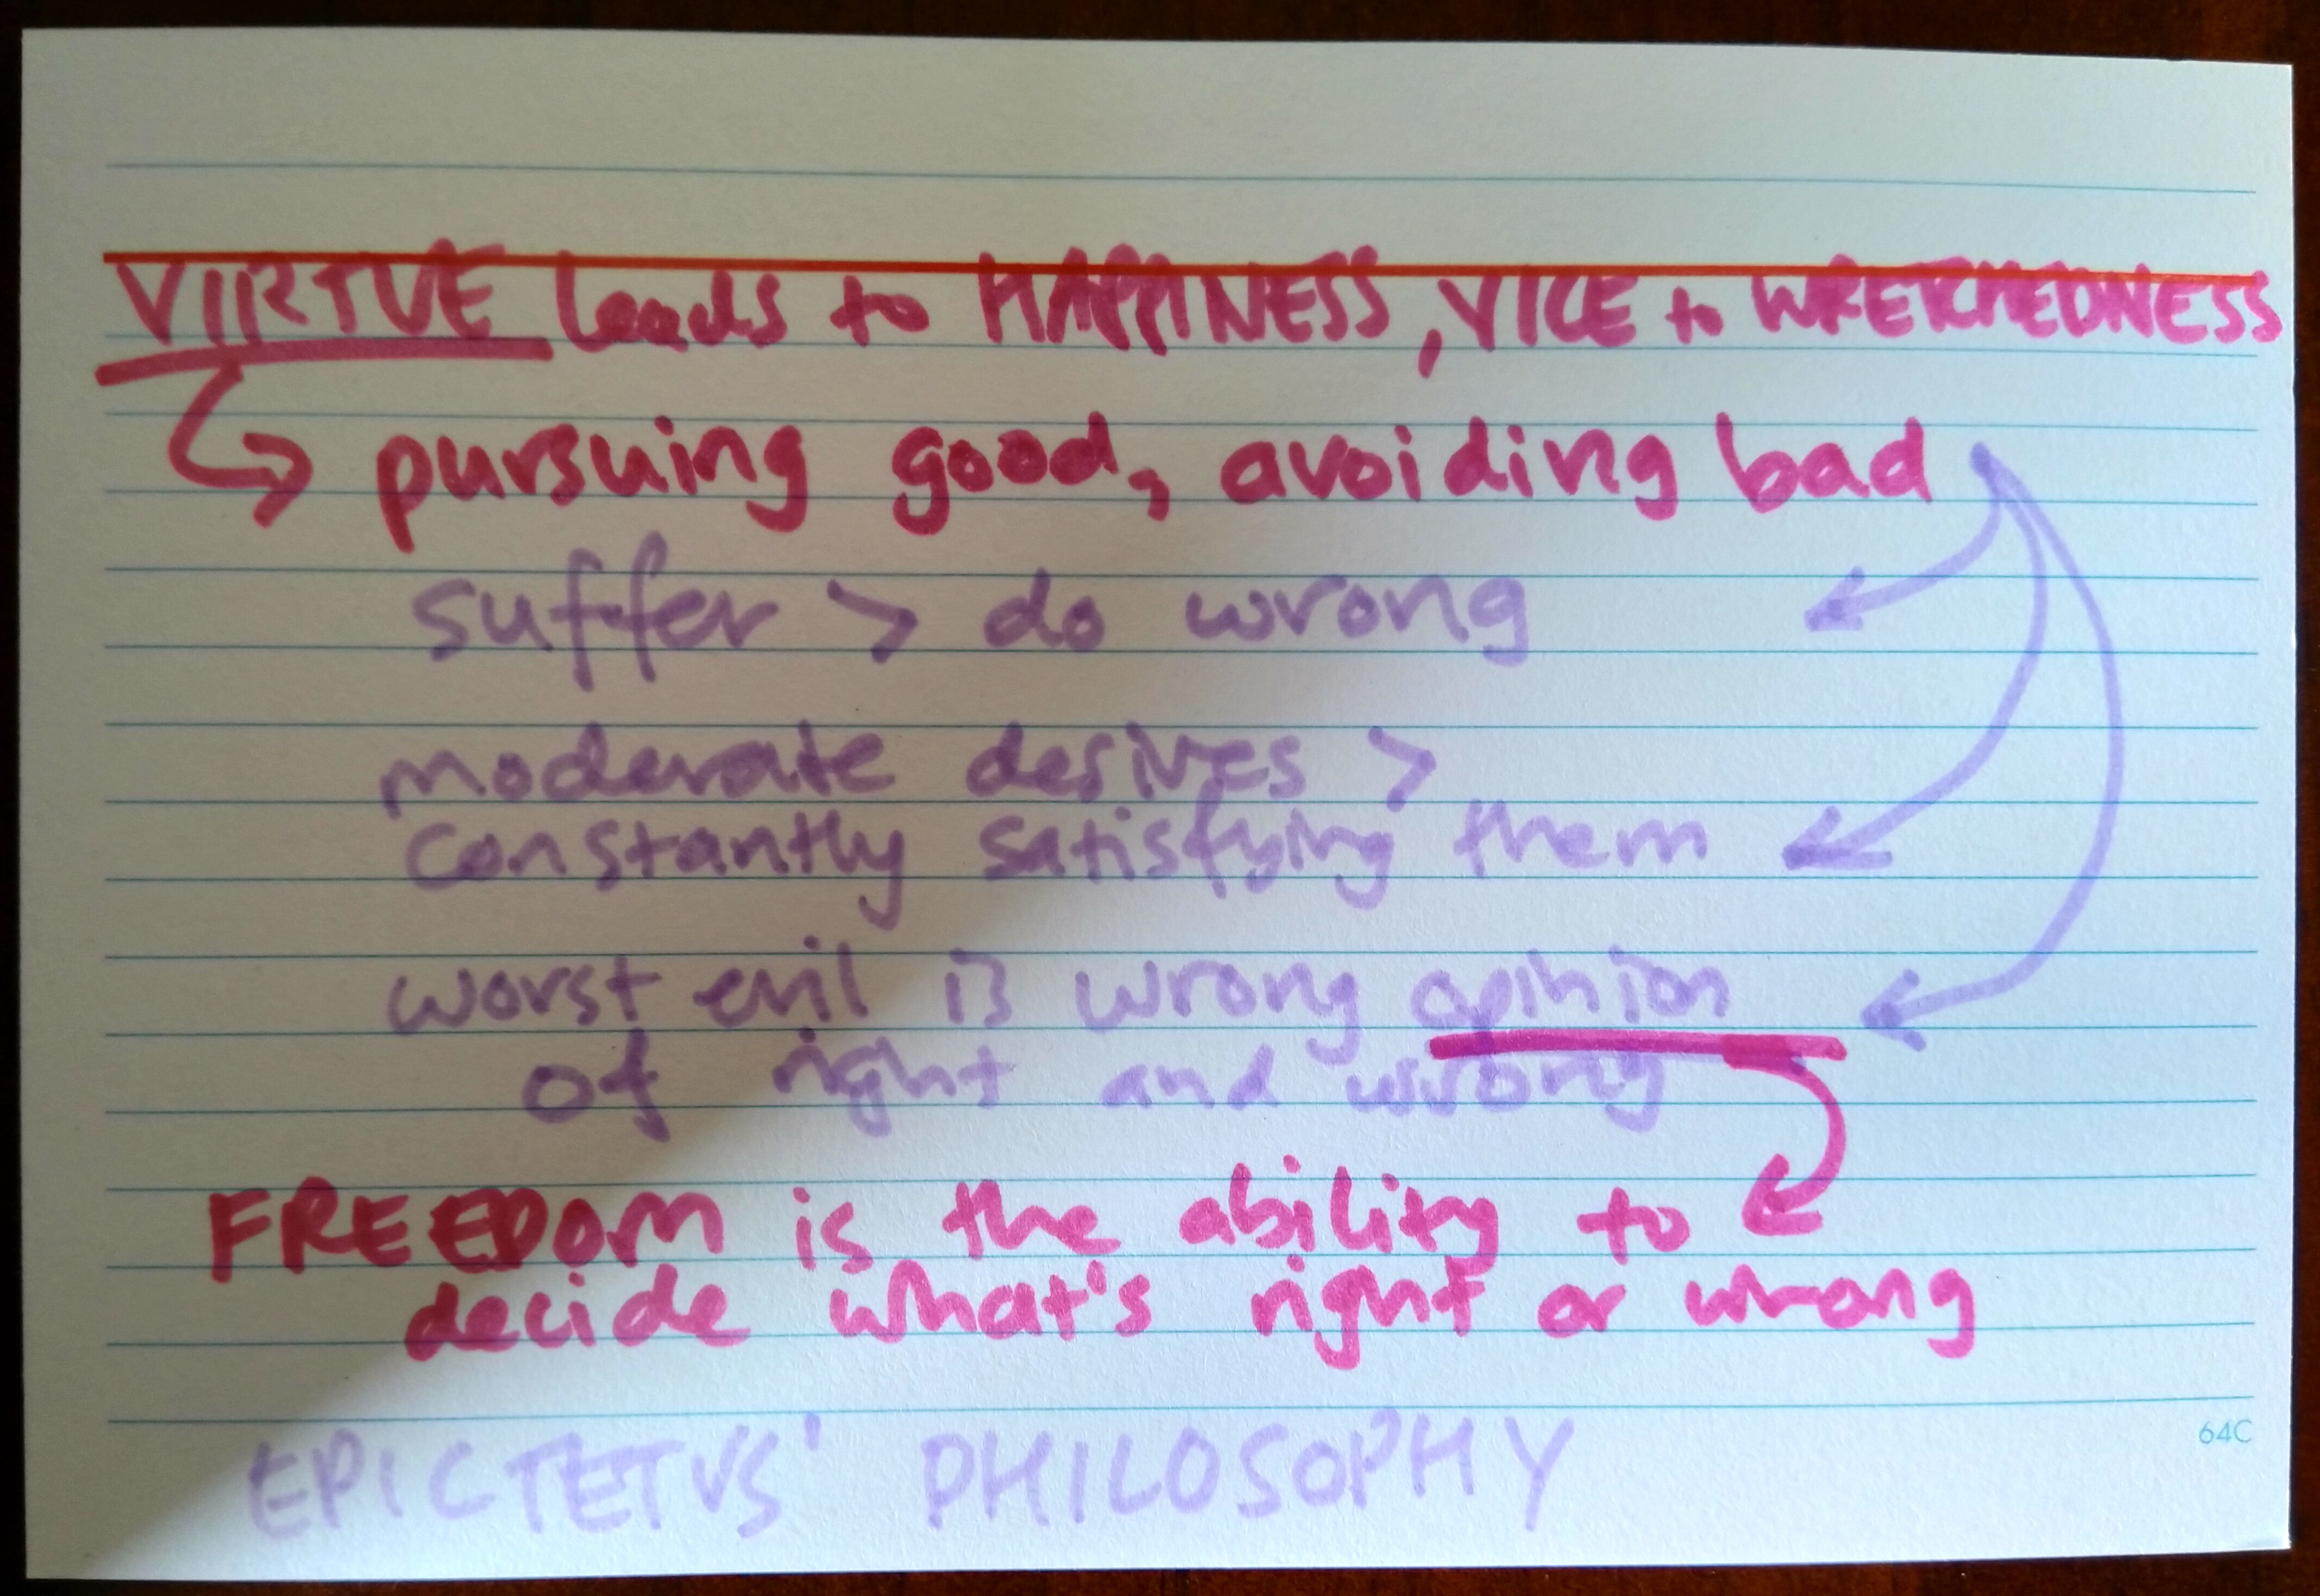 VIRTUE leads to HAPPINESS, VICE to WRETCHEDNESS
pursuing good, avoiding bad
suffer > do wrong
moderate desires >
constantly satisfying them
worst evil is wrong opinion
of right and wrong
FREEDOM is the ability to
decide what's right or wrong
64C
EPICTETUS' PHILOSOPHY